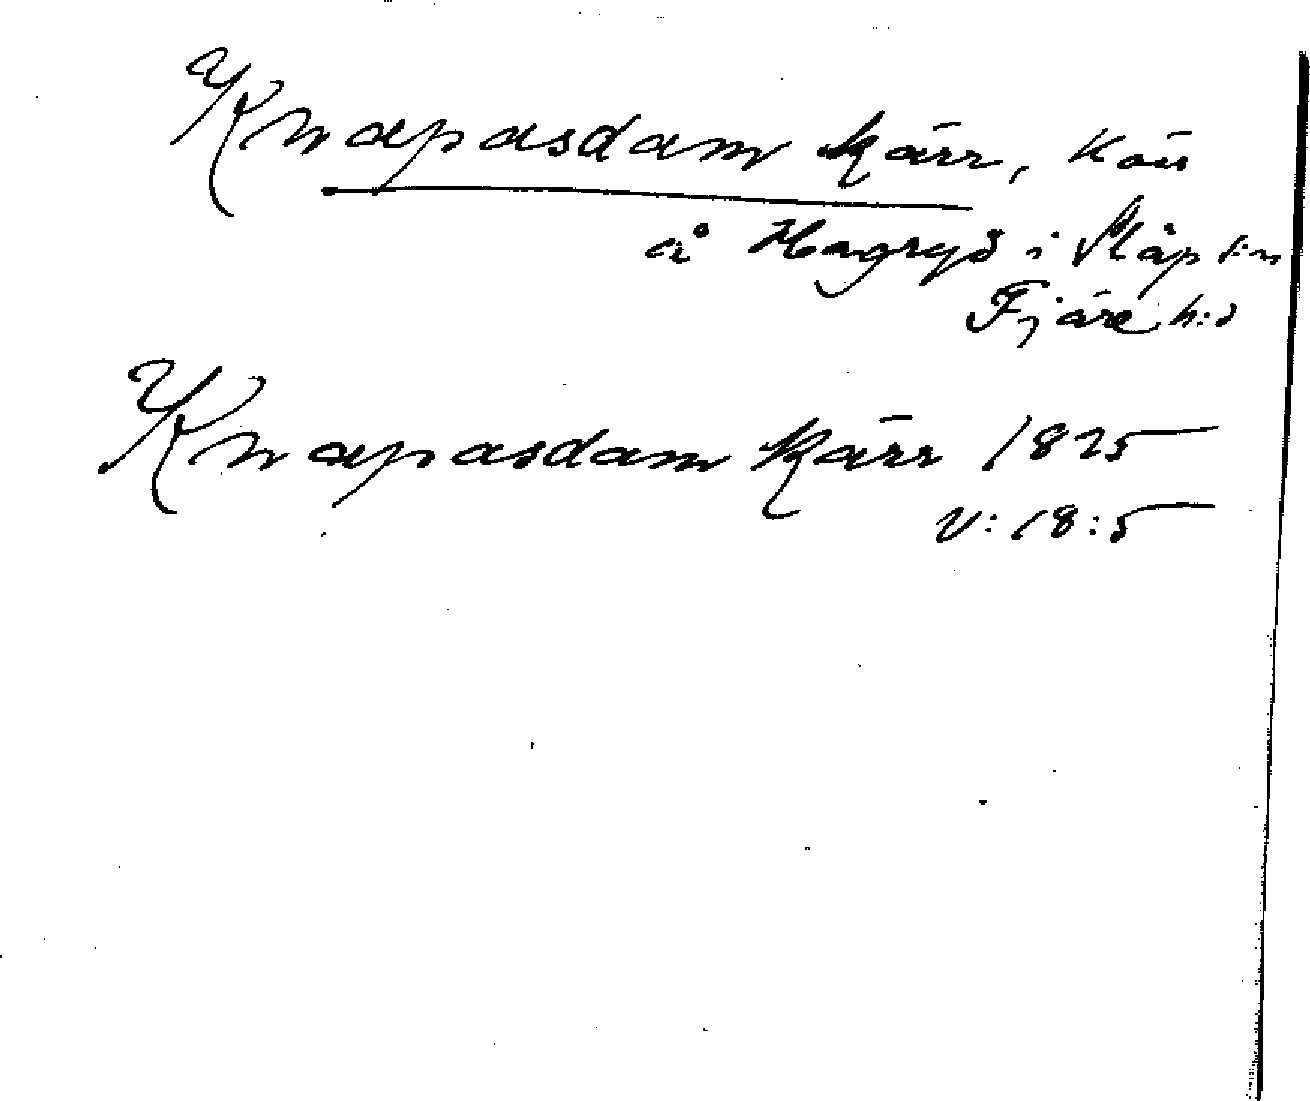 Knapasdam kärr, Kärr
å Hagryd i Släp s:n
Fjäre h:d
Knapasdam kärr 1825
V: 18:5